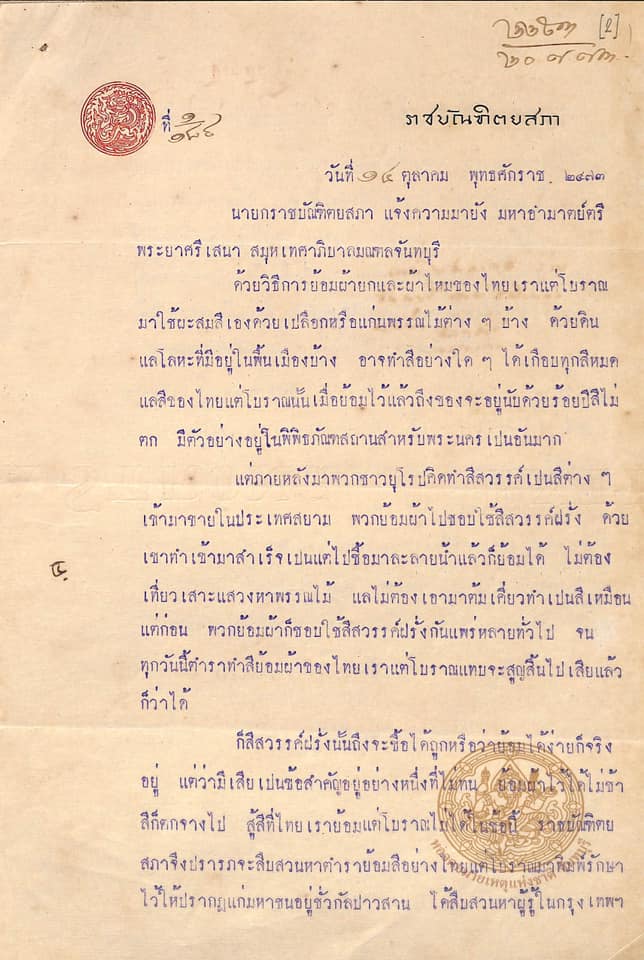 ๒๐๗๗๓ [2]
ที่ ๑/๑๘๕
ราชบัณฑิตยสภา
วันที่ ๑๔ ตุลาคม พุทธศักราช ๒๔๗๓
นายกราชบัณฑิตยสภา แจ้งความมายัง มหาอำมาตย์ตรี
พระยาศรีเสนา สมุหเทศาภิบาลมณฑลจันทบุรี
ด้วยวิธีการย้อมผ้ายกและผ้าไหมของไทยเราแต่โบราณ
มาใช้ผะสมสีเองด้วยเปลือกหรือแก่นพรรณไม้ต่าง ๆ บ้าง ด้วยดิน
แลโลหะที่มีอยู่ในพื้นเมืองบ้าง อาจทำสีอย่างใด ๆ ได้เกือบทุกสีหมด
แลสีของไทยแต่โบราณนั้นเมื่อย้อมไว้แล้วถึงของจะอยู่นับด้วยร้อยปีสีไม่
ตก มีตัวอย่างอยู่ในพิพิธภัณฑสถานสำหรับพระนครเปนอันมาก
แต่ภายหลังมาพวกชาวยุโรปคิดทำสีสวรรค์เปนสีต่าง ๆ
เข้ามาขายในประเทศสยาม พวกย้อมผ้าไปชอบใช้สีสวรรค์ฝรั่ง ด้วย
เขาทำเข้ามาสำเร็จเปนแต่ไปซื้อมาละลายน้ำแล้วก็ย้อมได้ ไม่ต้อง
เที่ยวเสาะแสวงหาพรรณไม้ แลไม่ต้องเอามาต้มเคี่ยวทำเปนสีเหมือน
แต่ก่อน พวกย้อมผ้าก็ชอบใช้สีสวรรค์ฝรั่งกันแพร่หลายทั่วไป จน
ทุกวันนี้ตำราทำสีย้อมผ้าของไทยเราแต่โบราณแทบจะสูญสิ้นไปเสียแล้ว
ก็ว่าได้
ก็สีสวรรค์ฝรั่งนั้นถึงจะซื้อได้ถูกหรือว่าย้อมได้ง่ายก็จริง
อยู่ แต่ว่ามีเสียเปนข้อสำคัญอยู่อย่างหนึ่งที่ไม่ทน ย้อมผ้าไว้ได้ไม่ช้า
สีก็ตกจางไป สู้สีที่ไทยเราย้อมแต่โบราณไม่ได้ในข้อนี้ ราชบัณฑิตย
สภาจึงปรารภจะสืบสวนหาตำราย้อมสีอย่างไทยแต่โบราณมาพิมพ์รักษา
ไว้ให้ปรากฏแก่มหาชนอยู่ชั่วกัลปาวสาน ได้สืบสวนหาผู้รู้ในกรุงเทพฯ
หอจดหมายเหตุแห่งชาติ จันทบุรี